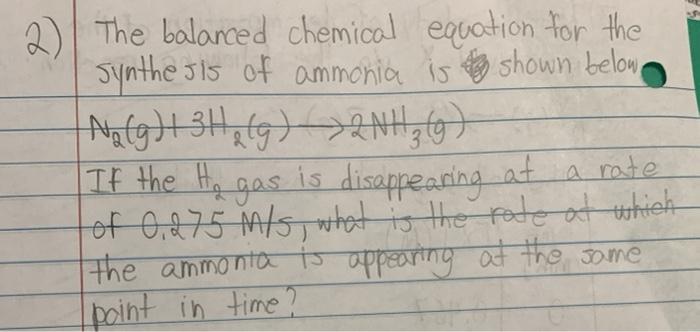 2) The balanced chemical equation for the
synthesis of ammonia is shown below
N₂(g) + 3H₂(g) → 2NH₃(g)
If the H₂ gas is disappearing at a rate
of 0.275 M/s, what is the rate at which
the ammonia is appearing at the same
point in time?